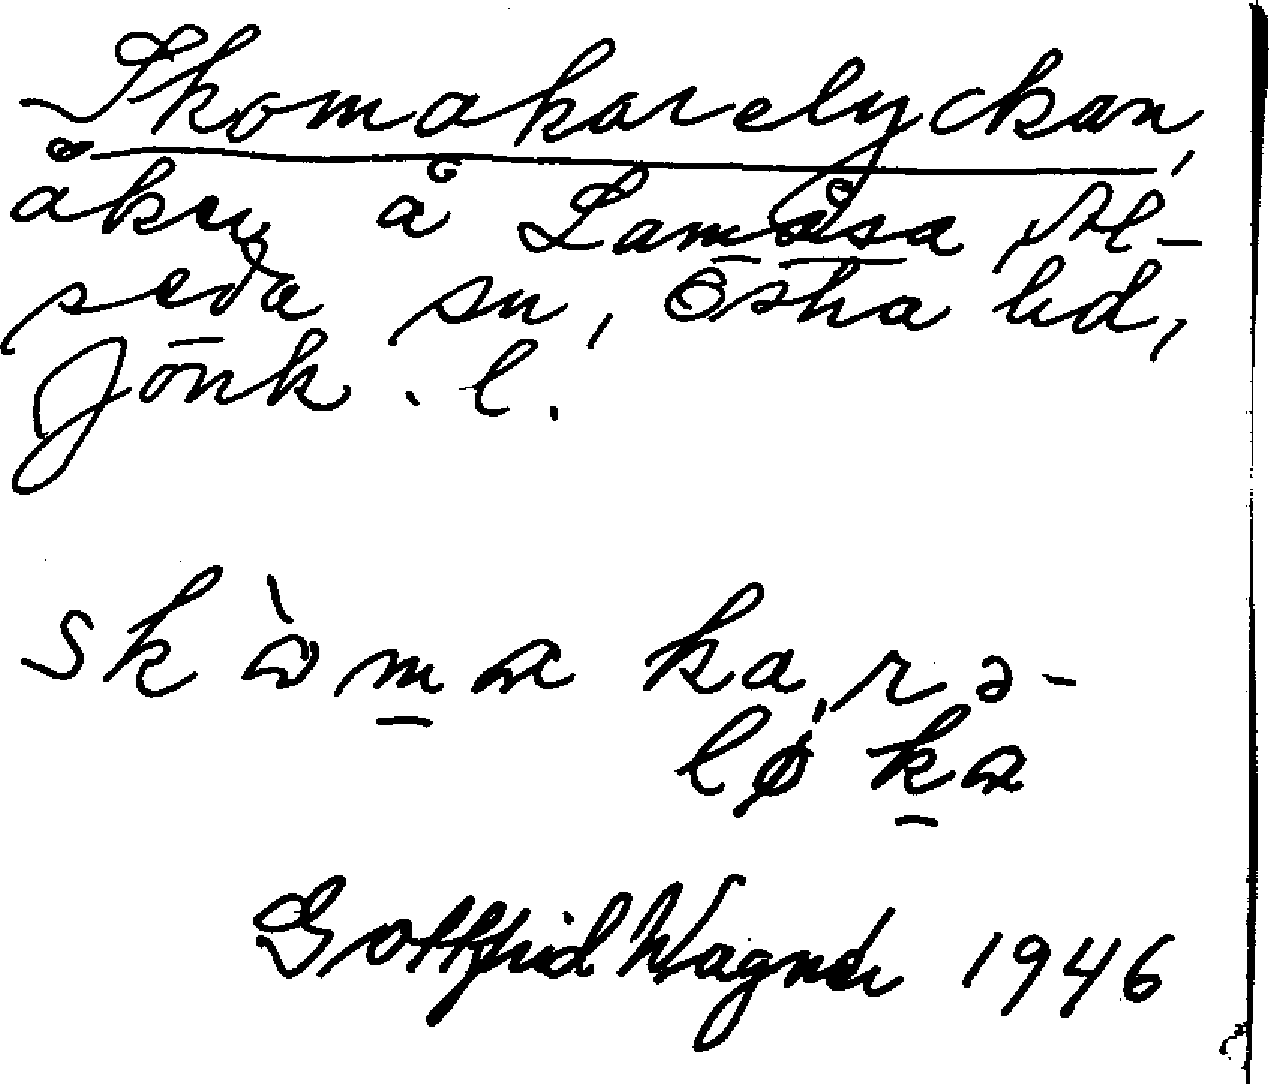 Skomakarelyckan,
åker å Lamåsa Al-
seda sn, Östra hd,
Jönk. l.
skò̀ma ka,rə-
løka
Gottfrid Wagner 1946